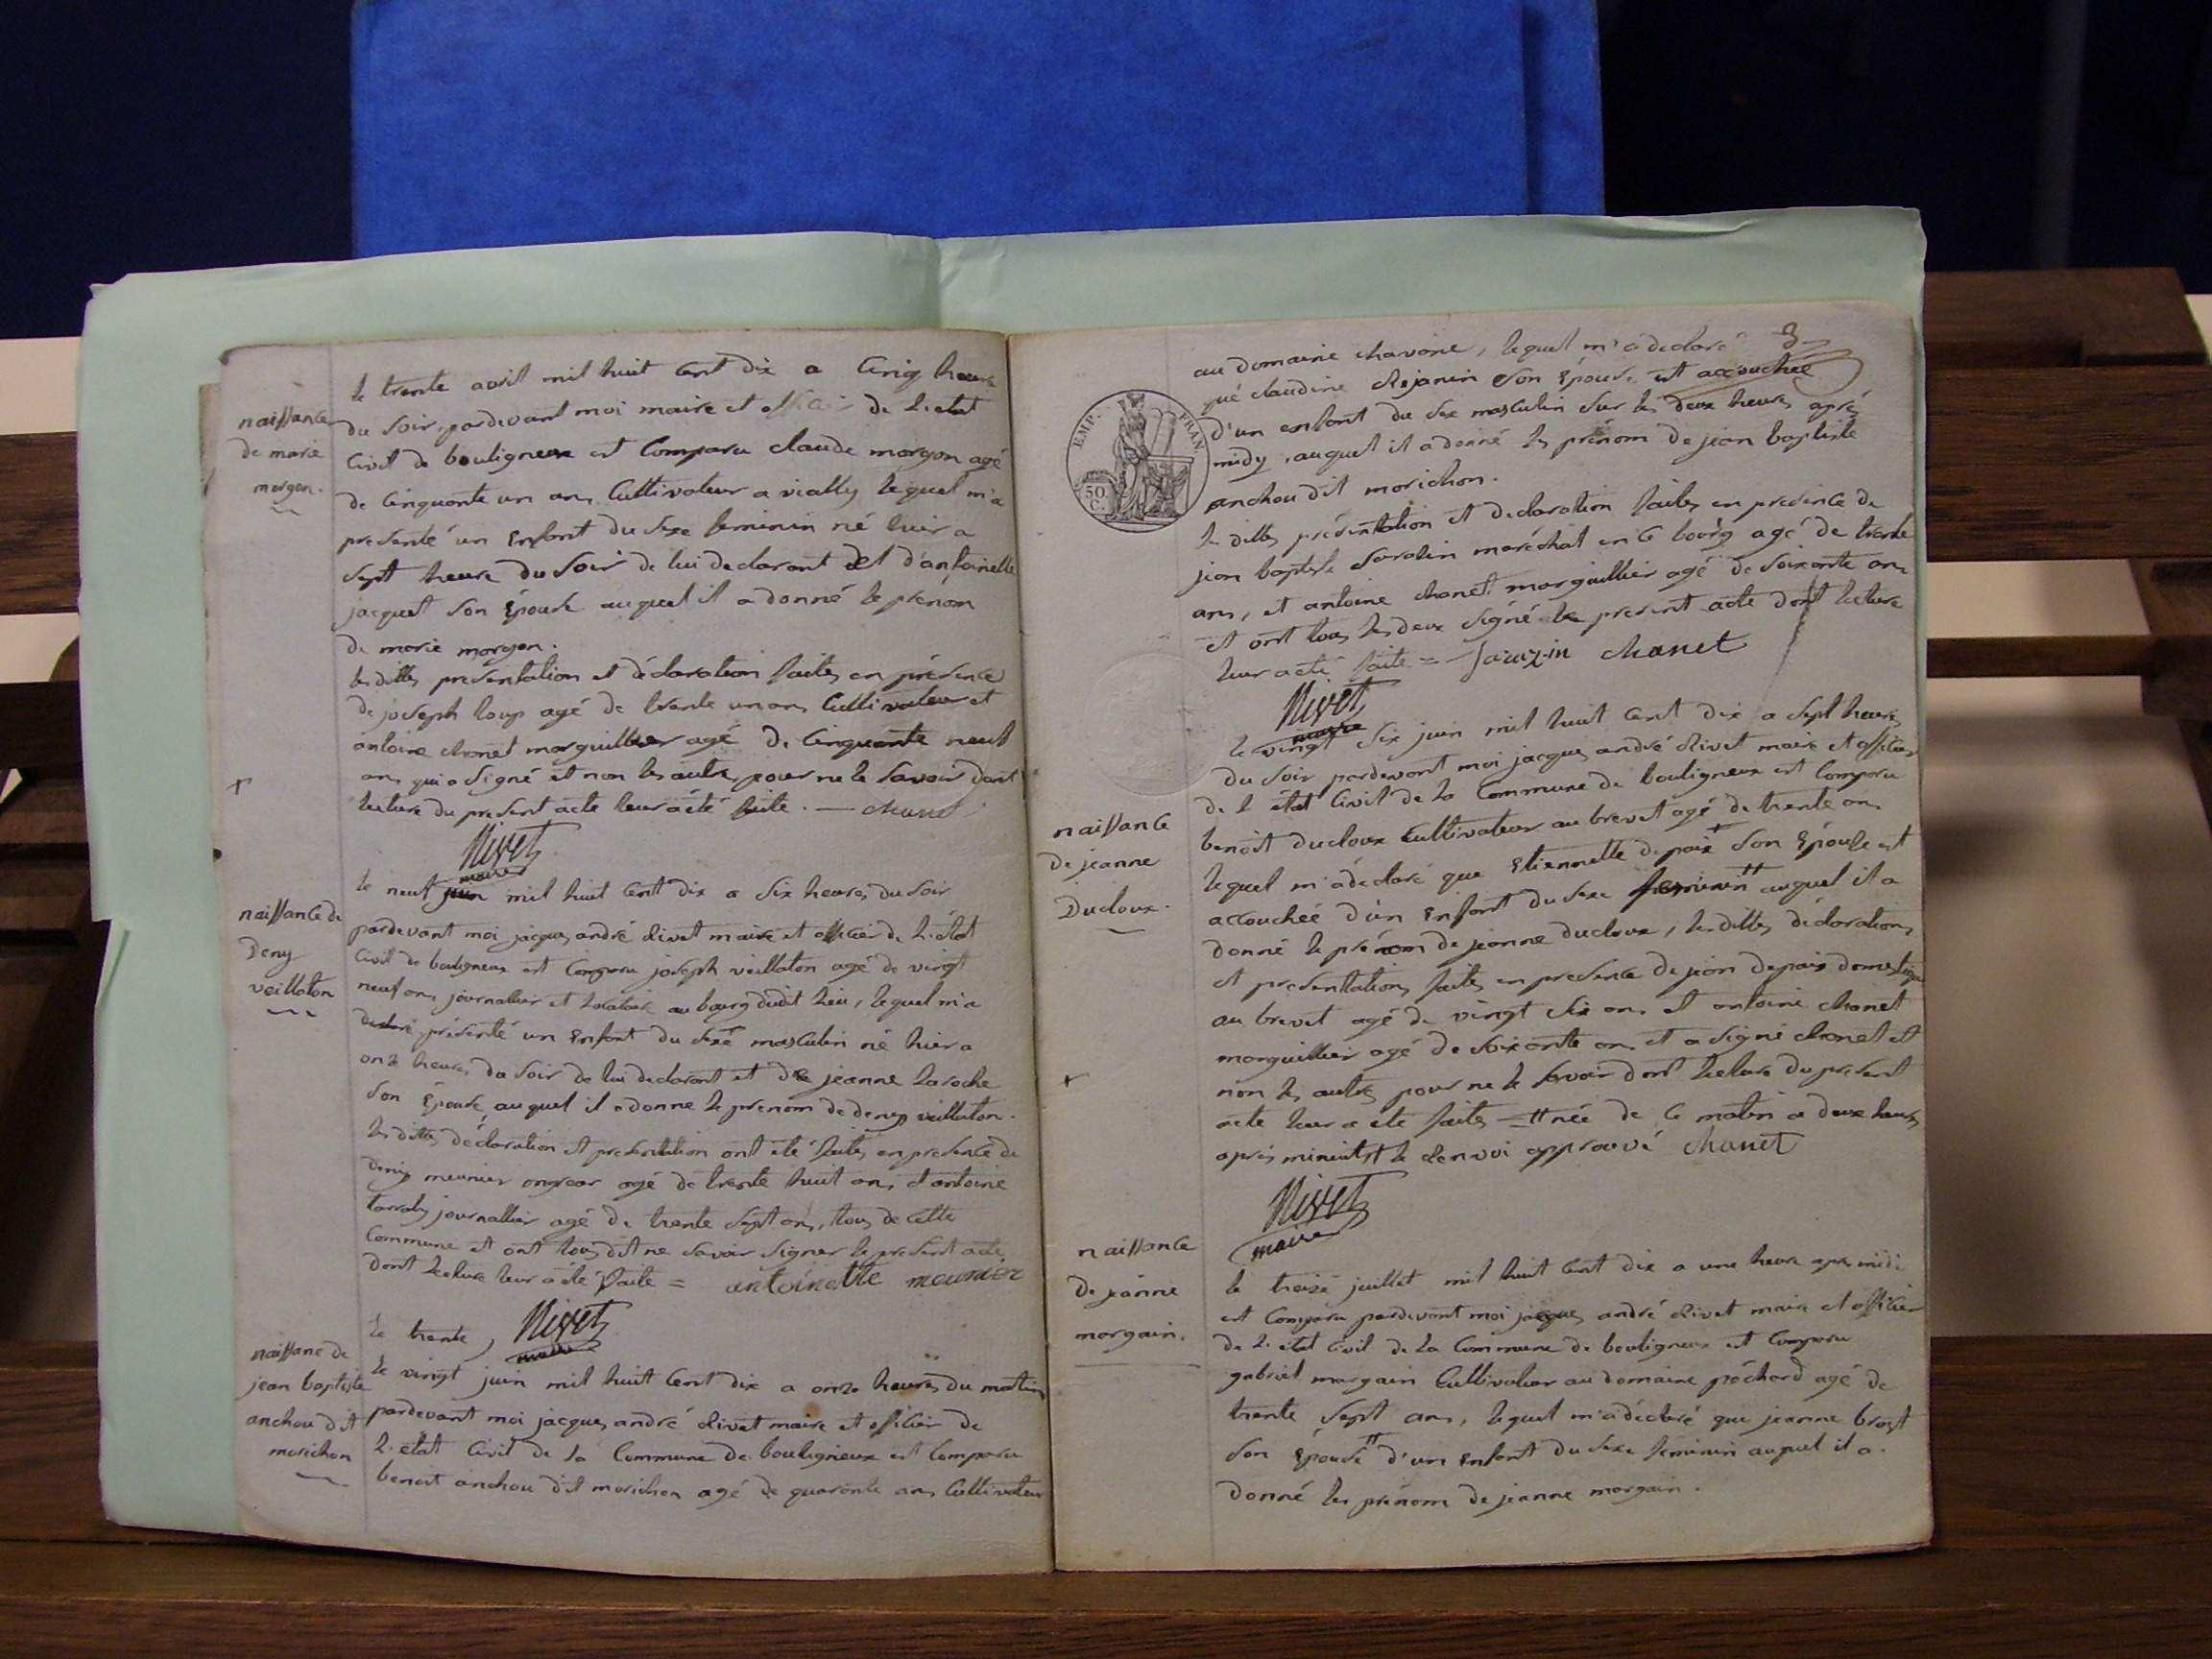 naissance
de marie
morgon.
le trente avril mil huit cent dix a cinq heure
du soir, pardevant moi maire et officier de l'état
civil de bouligneux est comparu claude morgon agé
de cinquante un ans cultivateur a vially lequel m'a
presenté un enfant du sexe feminin né luir a
sept heure du soir de lui declarant et d'antoinette
jacquet son épouse auquel il a donné le prenom
de marie morgon.
les dittes presentation et déclaration faites en présence
de joseph loup agé de trente un ans cultivateur et
antoine chanet marguillier agé de cinquante neuf
ans qui a signé et non les autres pour ne le savoir dont
lecture du present acte leur a été faite. — chanet
Rivet
maire
naissance de
Deny
veillaton
le neuf juin mil huit cent dix a six heures du soir
pardevant moi jacques andré Rivet maire et officier de l'état
civil de bouligneux est comparu joseph veillaton agé de vingt
neuf ans journallier et locataire au bourg dudit lieu, lequel m'a
presenté un enfant du sexe masculin né hier a
onze heures du soir de lui declarant et de jeanne laroche
son épouse, auquel il a donné le prenom de denys veillaton.
les dittes déclaration et presentation ont été faites en presence de
deny meunier agé de trente huit ans, et antoine
journallier agé de trente sept ans, tous de cette
commune et ont tous dit ne savoir signer le present acte
dont lecture leur a été faite = antoinette meunier
Rivet
maire
naissance de
jean baptiste
anchou dit
morichon
le trente,
le vingt juin mil huit cent dix a onze heures du matin
pardevant moi jacques andré Rivet maire et officier de
l'etat civil de la commune de bouligneux est comparu
benoit anchou dit morichon agé de quarante ans cultivateur
3
au domaine chavane, lequel m'a declaré
qué claudine Rejanin son épouse est accouchée
d'un enfant du sexe masculin sur les deux heures aprés
midy, auquel il a donné les prénom de jean baptiste
anchou dit morichon.
EMP. FRAN
50
C.
les dittes présentation et declaration faites en presence de
jean baptiste sarazin maréchal en ce bourg agé de trente
ans, et antoine chanet marguillier agé de soixante ans
et ont tous les deux signé le present acte dont lecture
leur a eté faite = Sarazin chanet
Rivet
maire
naissance
de jeanne
Ducloux.
le vingt six juin mil huit cent dix a sept heures
du soir pardevant moi jacques andré Rivet maire et officier
de l'état civil de la commune de bouligneux est comparu
benoit ducloux cultivateur au brevet agé de trente ans
lequel m'a déclaré que Etiennette depaix son épouse est
accouchée d'un enfant du sexe feminin auquel il a
donné le prénom de jeanne ducloux, les dittes déclarations
et presentations faites en presence de jean depaix domestique
au brevet agé de vingt six ans et antoine chanet
marguillier agé de soixante ans et a signé chanet et
non les autres pour ne le savoir dont lecture du present
acte leur a eté faites = née de ce matin a deux heures
aprés minuit le renvoi approuvé chanet
Rivet
maire
naissance
de jeanne
morgain.
le treize juillet mil huit cent dix a une heure apres midi
est comparu pardevant moi jacques andré Rivet maire et officier
de l'etat civil de la commune de bouligneux est comparu
gabriel morgain cultivateur au domaine péchard agé de
trente sept ans, lequel m'a déclaré que jeanne brost
son épouse d'un enfant du sexe feminin auquel il a
donné les prénom de jeanne morgain.